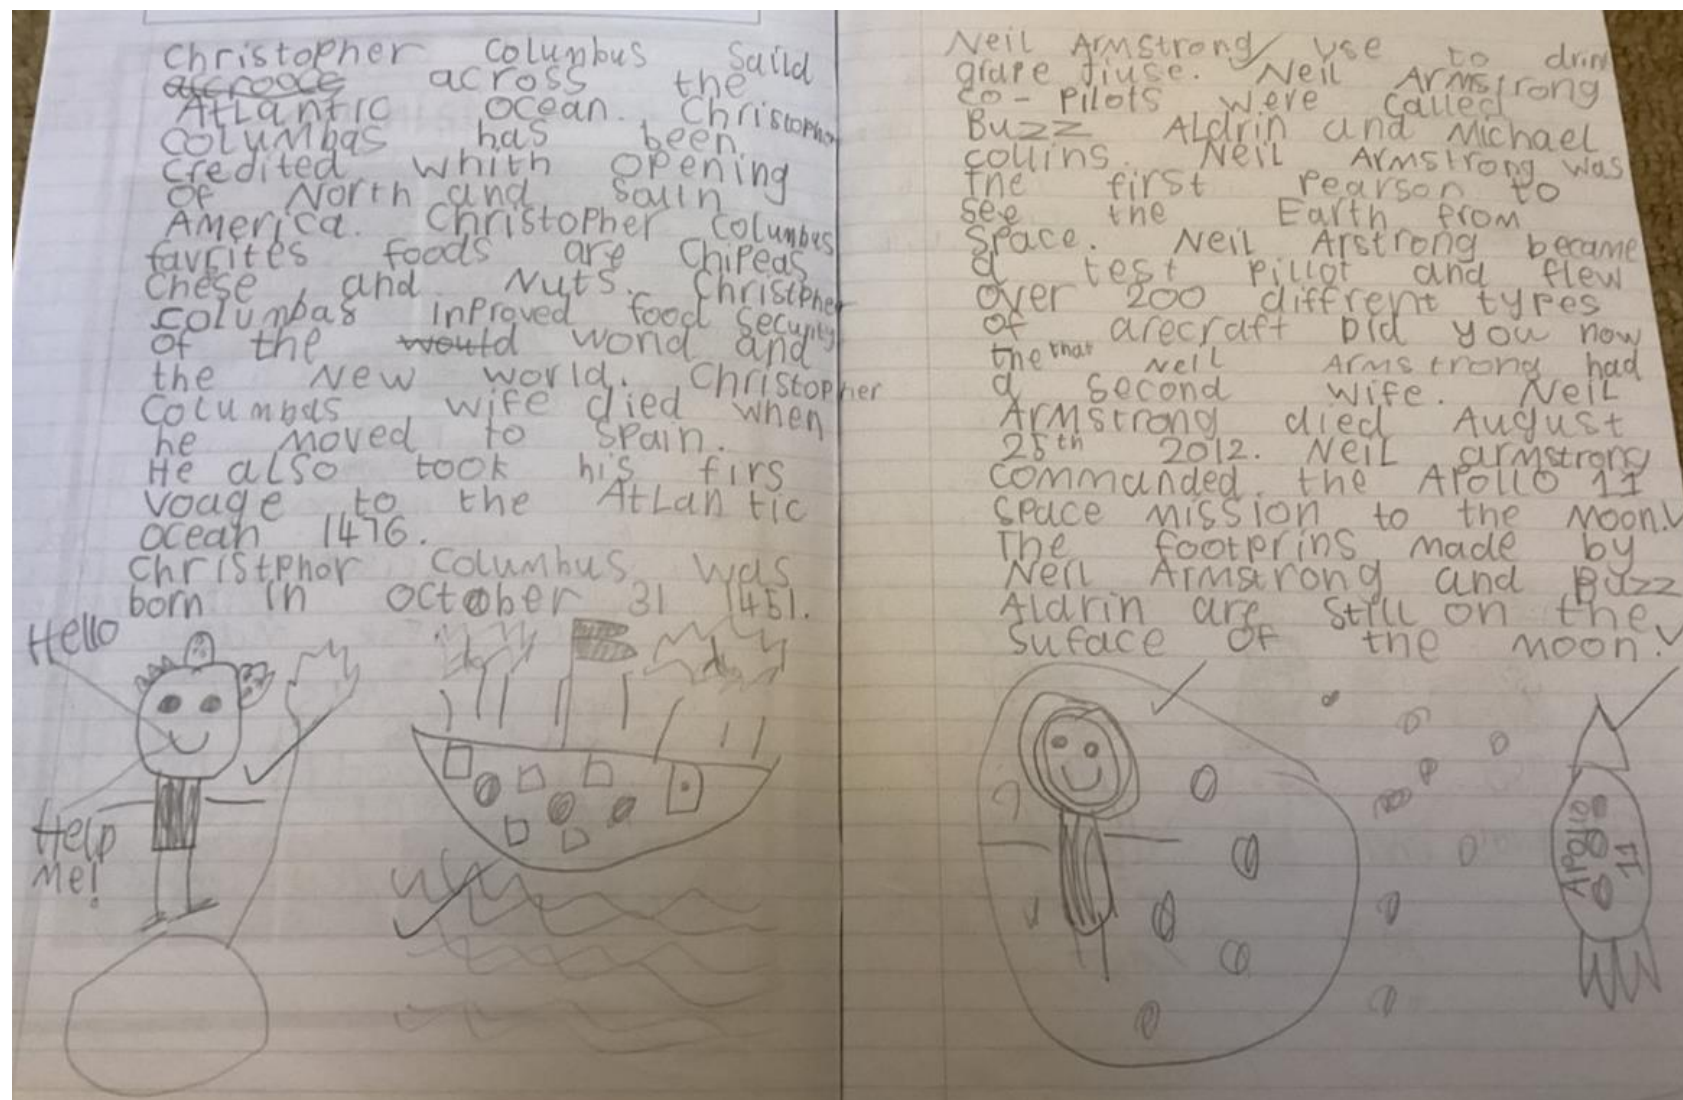 Christopher Columbus Saild
accroace across the
Atlantic ocean. Christopher
Columbas has been
credited whith opening
of North and South
America. Christopher Columbus
favrites foods are Chipeas
Chese, and Nuts. Christpher
columbas inproved food security
of the would world and
the New world. Christopher
Columbas wife died when
he moved to Spain.
He also took his firs
voage to the Atlantic
ocean 1476.
Christphor Columbus was
born in october 31 1451.
Hello
Help
Me!
Neil Armstrong use to drin
grape jiuse. Neil Armstrong
co-Pilots were called
Buzz Aldrin and Michael
collins. Neil Armstrong was
the first Pearson to
see the Earth from
Space. Neil Arstrong became
a test pillot and flew
over 200 diffrent types
of arecraft Did you now
the that Neil Armstrong had
a second wife. Neil
Armstrong died August
25th 2012. Neil armstrong
commanded the Apollo 11
space mission to the Moon.
The footprins made by
Neil Armstrong and Buzz
Aldrin are still on the
suface of the moon.
Apollo
11